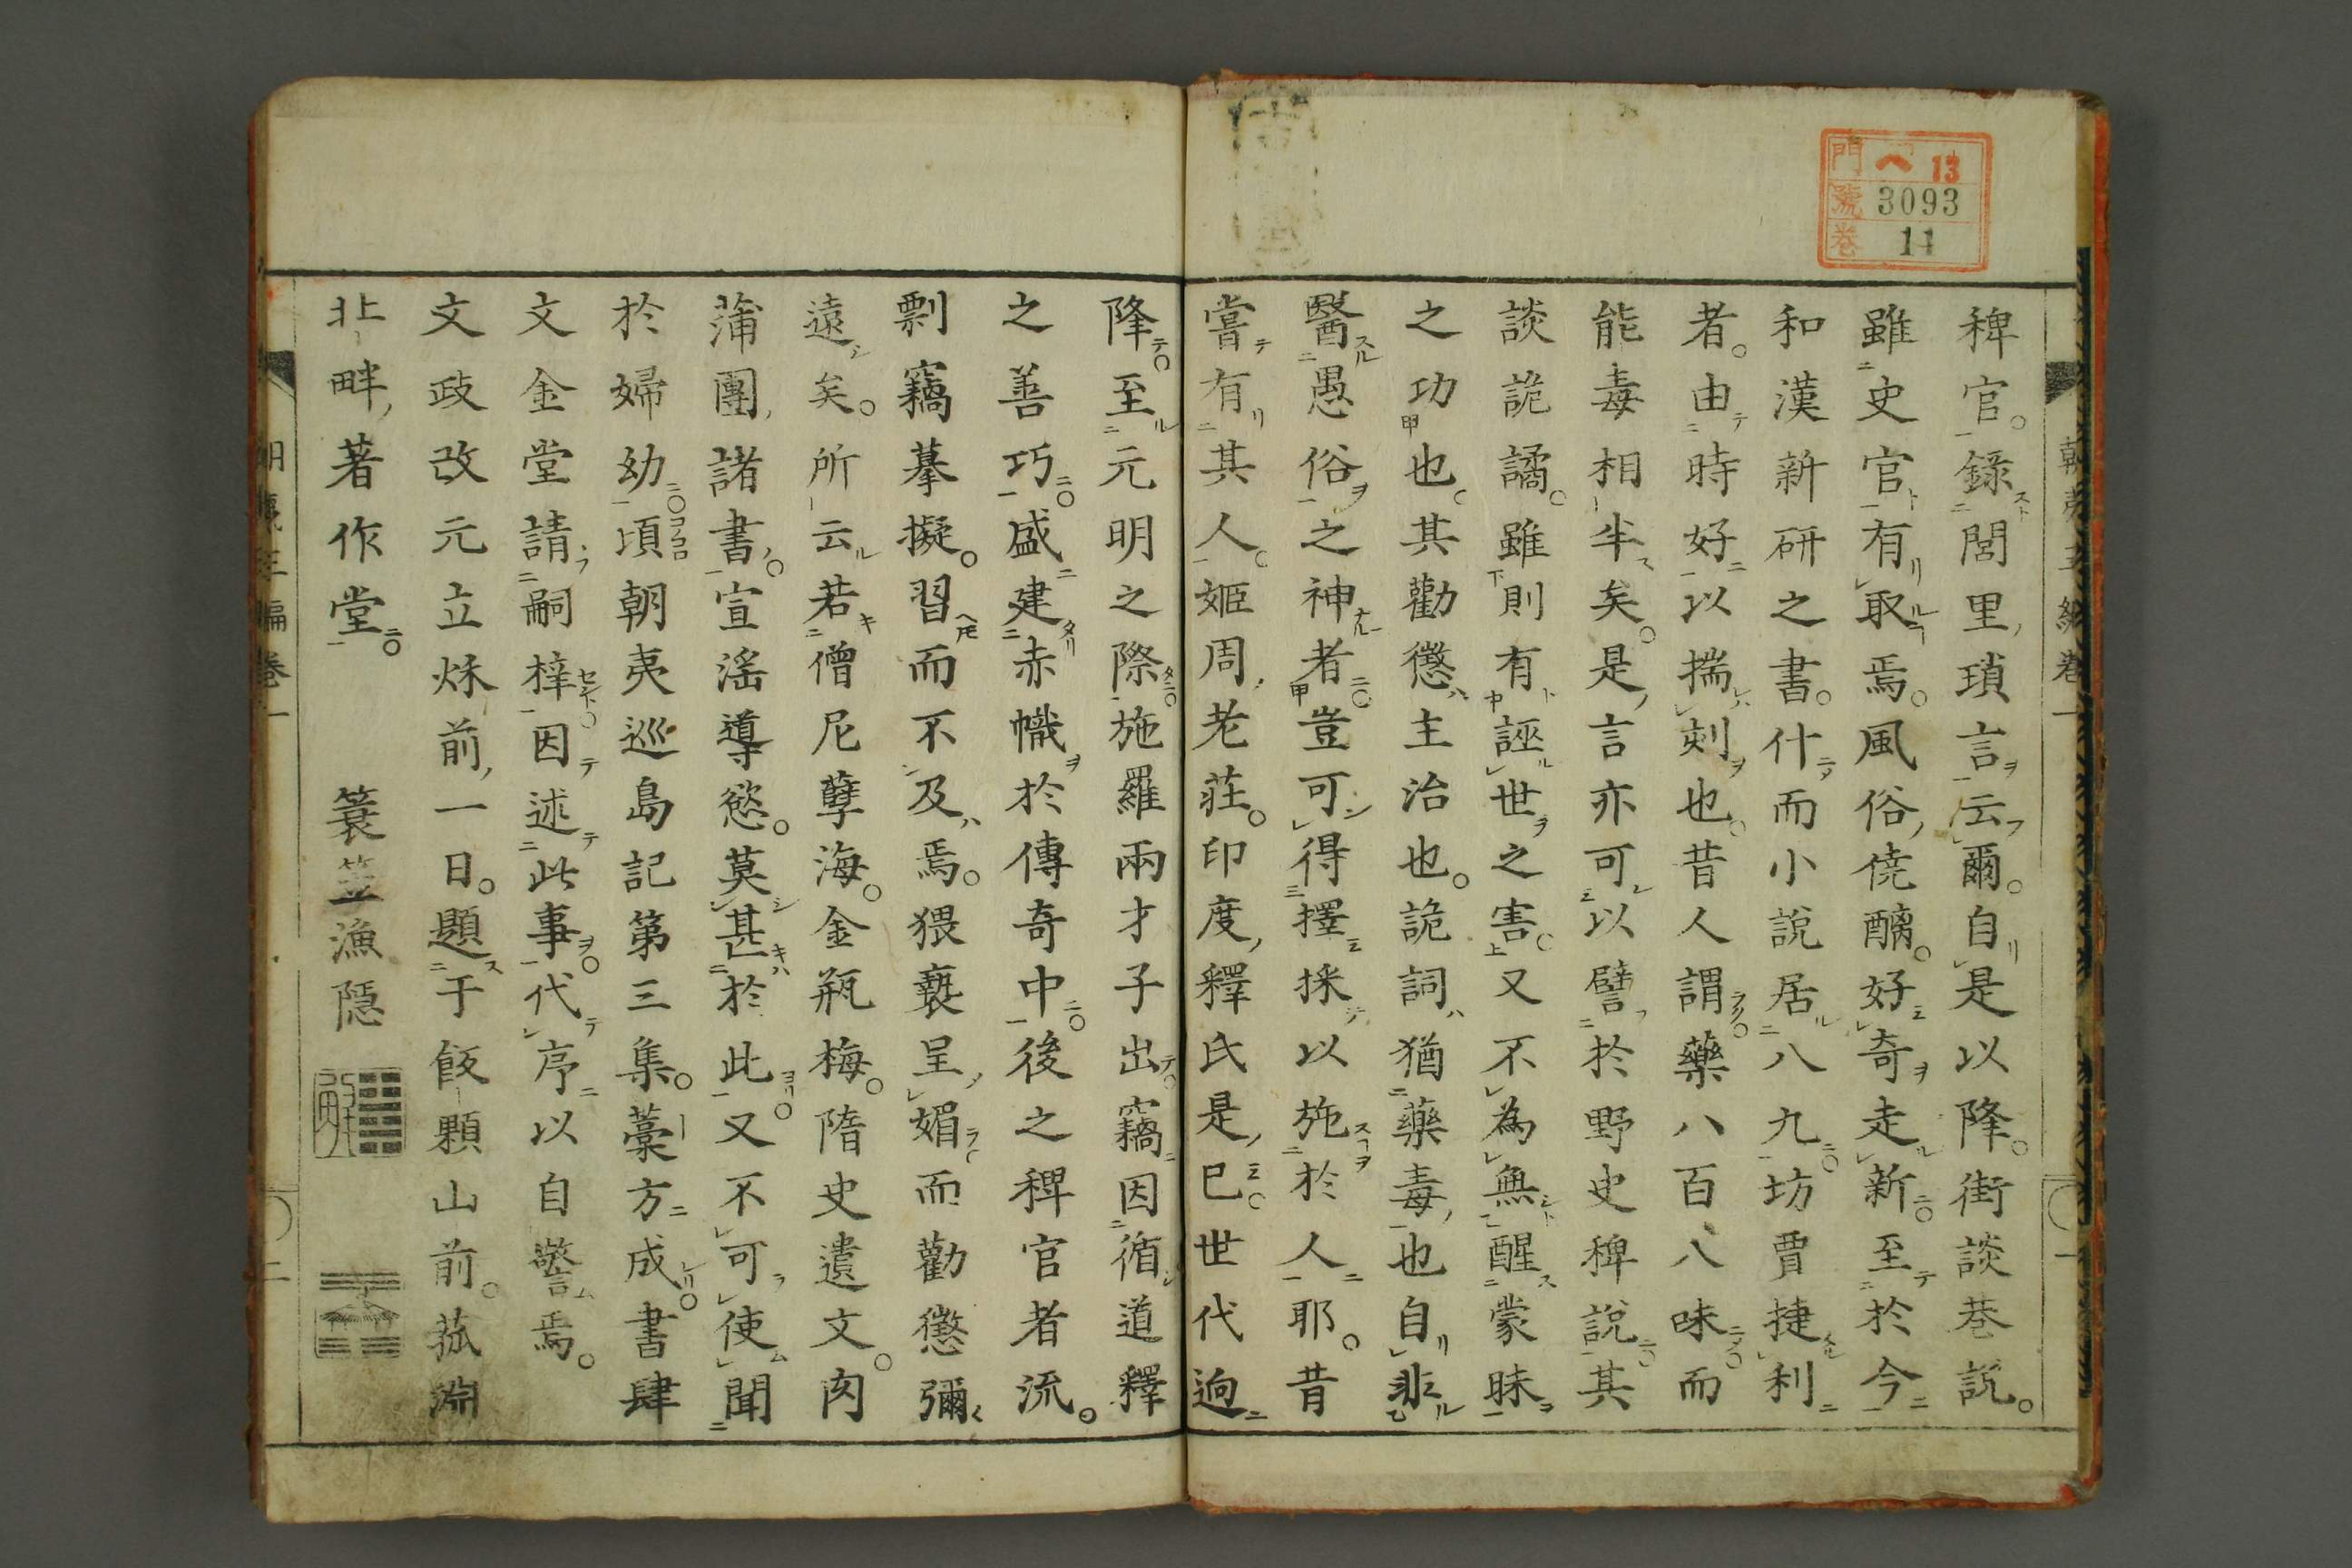 門 へ 13
號 3093
卷 11
稗官。錄閭里瑣言云爾。自是以降。街談巷説。
雖史官有取焉。風俗澆醨。好奇走新。至於今
和漢新研之書。什而小說居八九。坊賈捷利
者。由時好以揣刺也。昔人謂藥八百八味而
能毒相半矣。是言亦可以譬於野史稗說。其
談詭譎。雖則有誣世之害。又不為無醒蒙昧
之功也。其勸懲主治也。詭詞猶藥毒也自非
醫愚俗之神者豈可得擇採以施於人耶。昔
嘗有其人。姬周老莊。印度釋氏是已。世代逈
降。至元明之際。施羅兩才子出。竊因循道釋
之善巧。盛建赤幟於傳奇中。後之稗官者流。
剽竊摹擬。習而不及焉。猥褻呈媚而勸懲彌
遠矣。所云若僧尼孽海。金瓶梅。隋史遺文。肉
蒲團諸書。宣滛導慾。莫甚於此。又不可使聞
於婦幼。頃朝夷巡島記第三集。藁方成。書肆
文金堂請嗣梓。因述此事。代序以自警焉。
文政改元立秌前一日。題于飯顆山前。菰淵
北畔著作堂。 簑笠漁隠